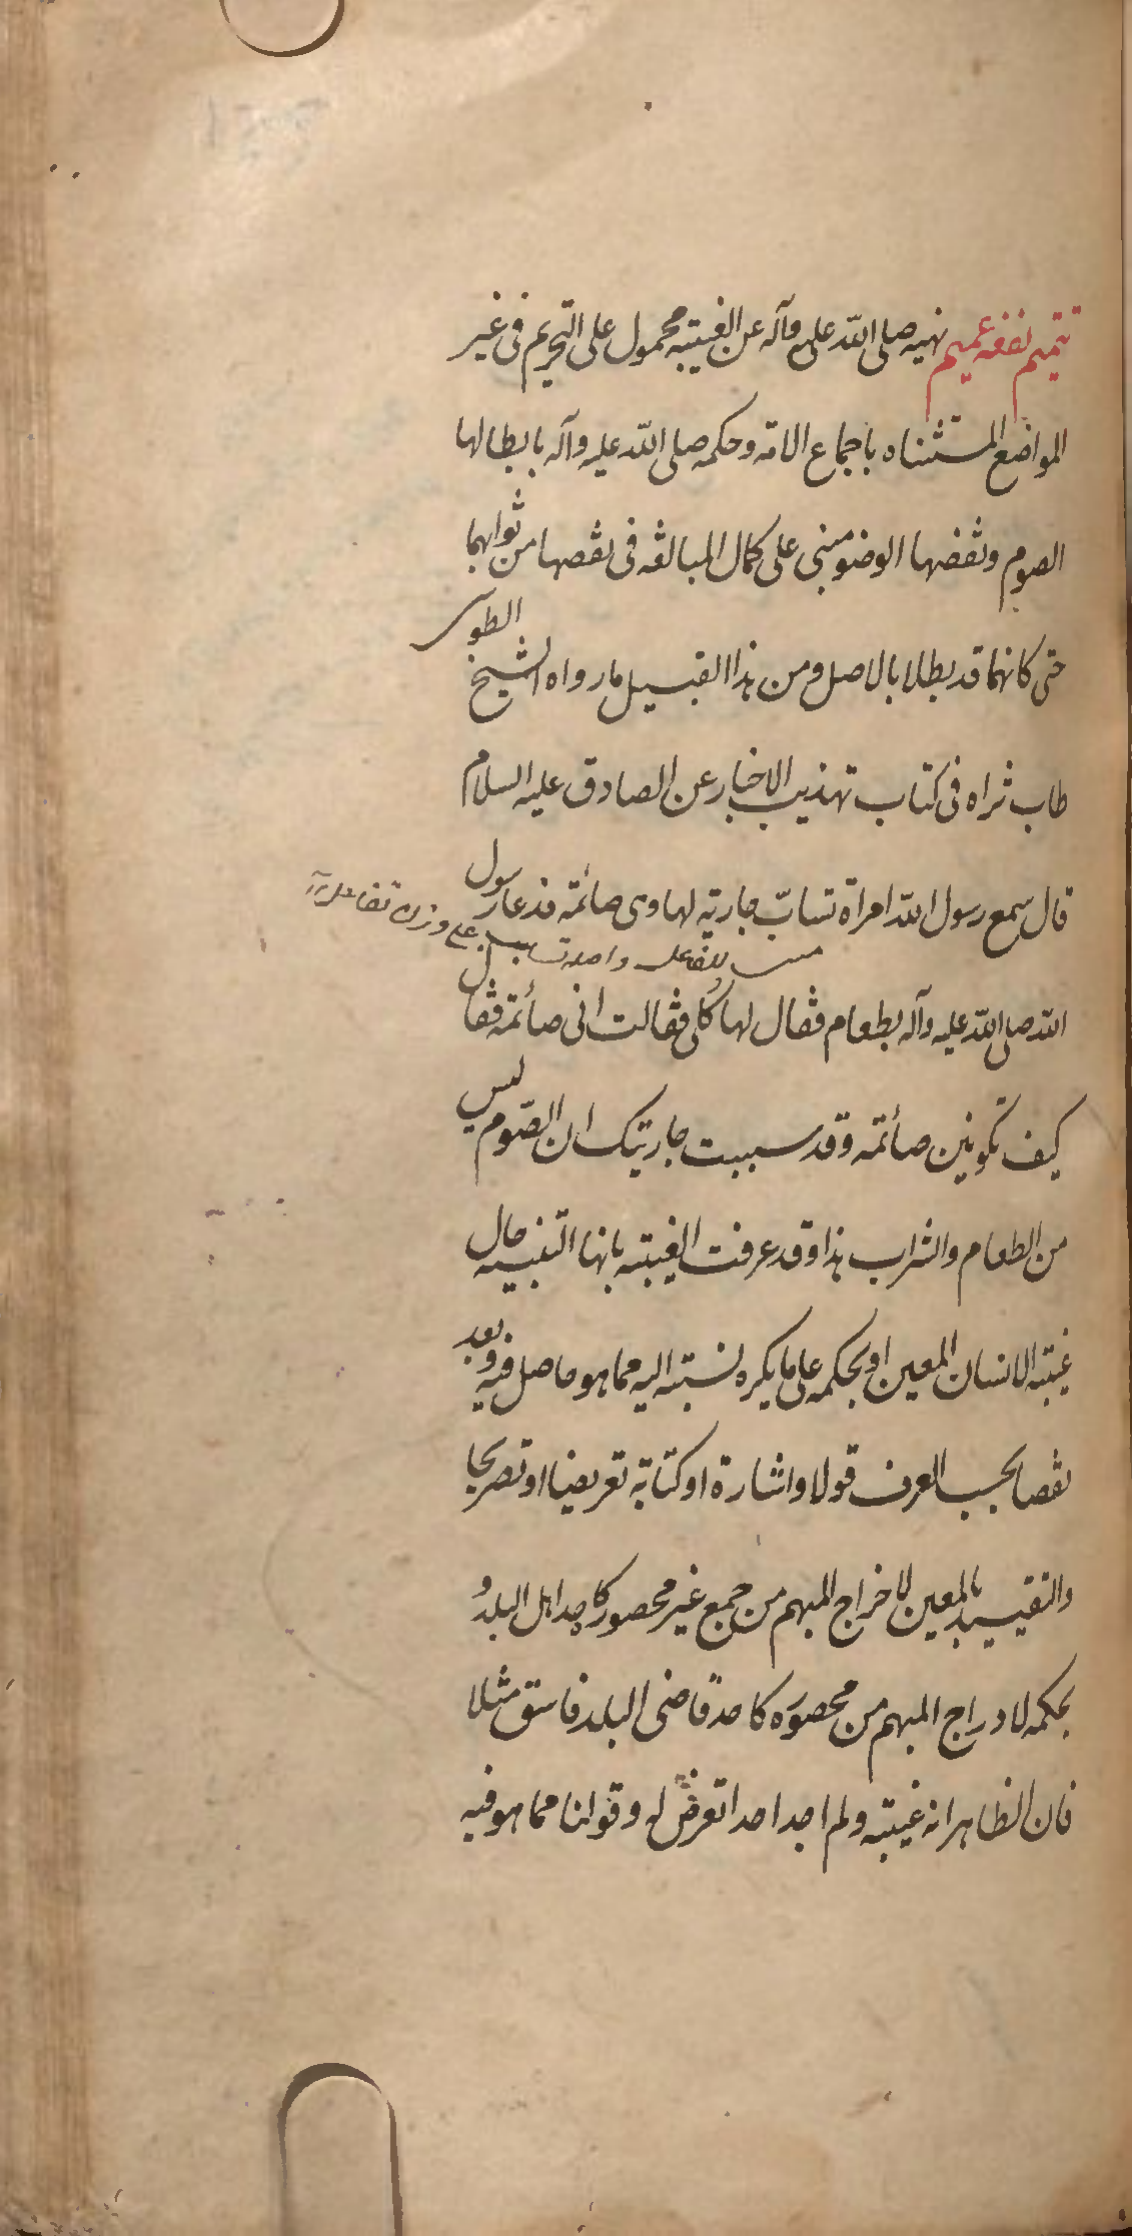 تتميم نفعه عميم نهيه صلى الله عليه وآله عن الغيبة محمول على التحريم فى غير
المواضع المستثناه باجماع الامة وحكمه صلى الله عليه وآله بابطالها
الصوم ونقضها الوضو مبنى على كمال المبالغه فى نقصها من ثوابهما
حتى كانهما قد بطلا بالاصل ومن هذا القبيل ما رواه الشيخ الطوسى
طاب ثراه فى كتاب تهذيب الاخبار عن الصادق عليه السلام
قال سمع رسول الله امراة تسابّ جارية لها وهى صائمة فدعا رسول
واصله تسابب على وزن تفاعل
الله صلى الله عليه وآله بطعام فقال لها كُلى فقالت انى صائمة فقال
كيف تكونين صائمه وقد سببت جاريتك ان الصّوم ليس
من الطعام والشراب هذا وقد عرفت الغيبة بانها التنبيه حال
غيبة الانسان المعين او بحكمه على ما يكره نسبته اليه مما هو حاصل فيه ويعد
نقصا بحسب العرف قولا واشارة او كتابة تعريضا او تصريحا
والتقييد بالمعين لاخراج المبهم من جمع غير محصور كاحد اهل البلد و
بحكمه لادراج المبهم من محصوره كاحد قاضى البلد فاسق مثلا
فان الظاهر انه غيبة ولم اجد احدا تعرض له وقولنا مما هو فيه